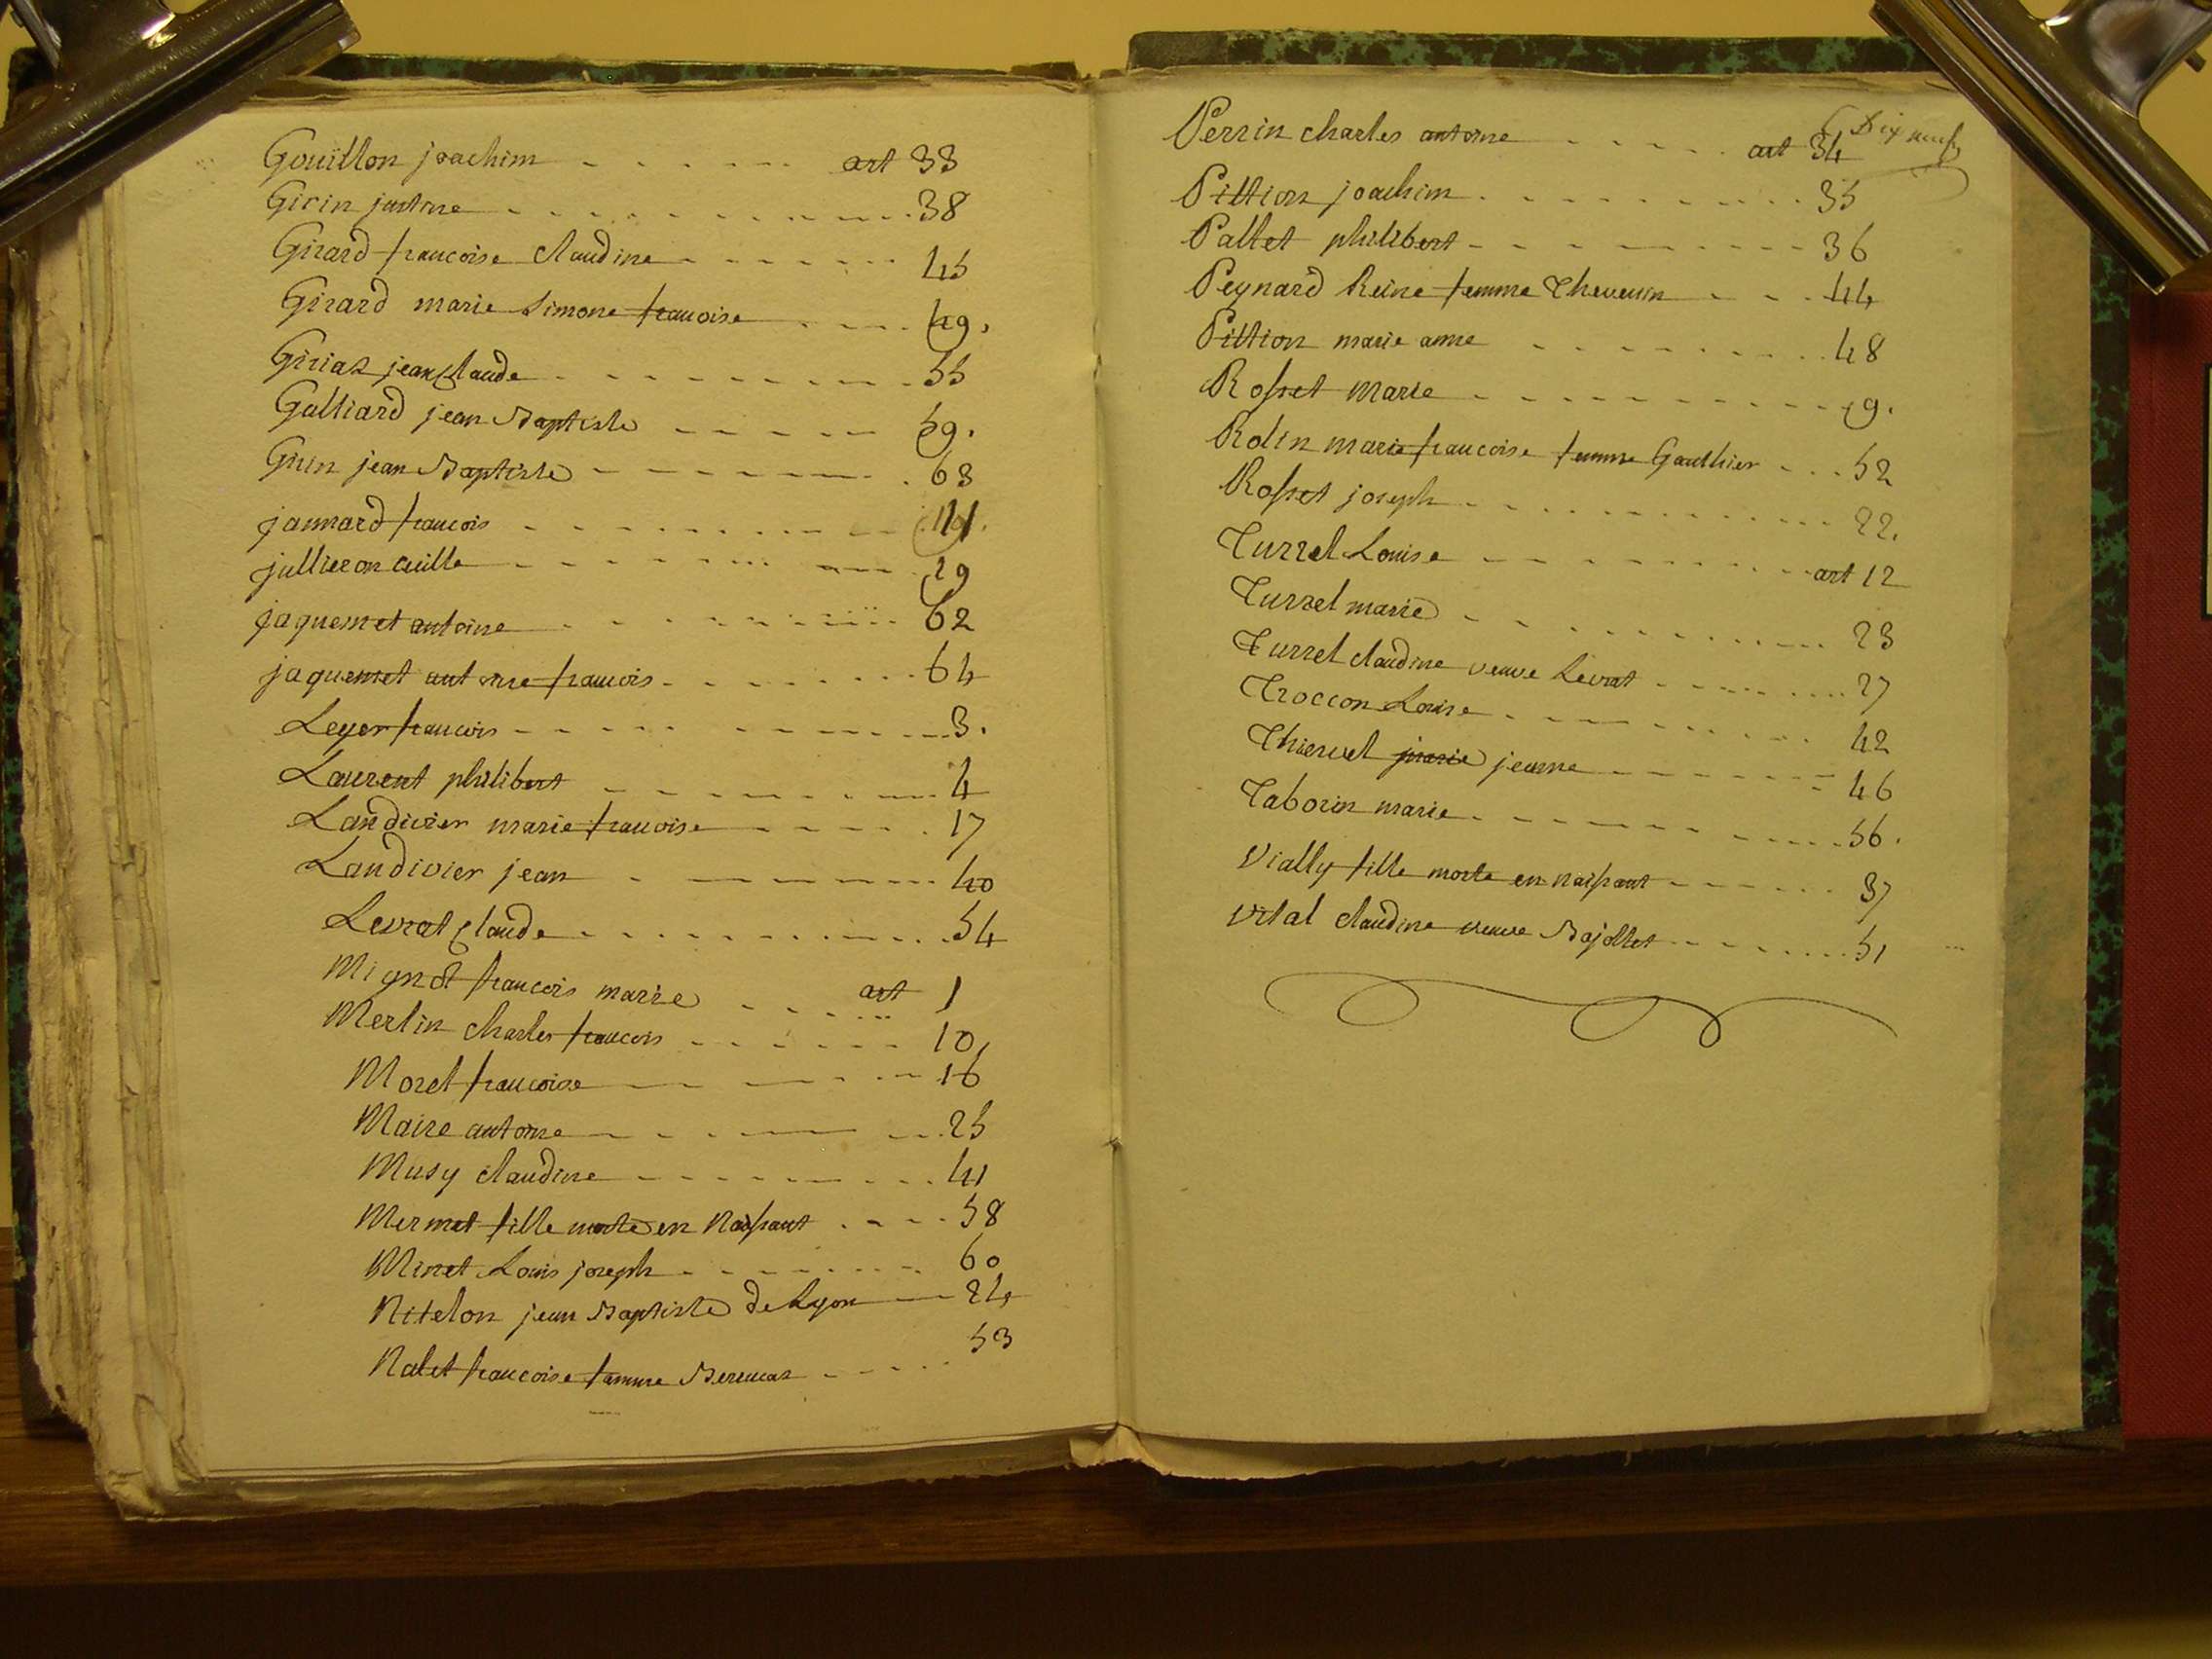 Gouillon joachim art 33
Girin justine 38
Girard francoise Claudine 45
Girard marie Simone francoise 49.
Girias jean Claude 55
Galliard jean Baptiste 59.
Girin jean Baptiste 63
jannard francois
jullieron 29
jaquemet antoine 62
jaquemet antoine francois 64
Leger francois 3.
Laurent philibert 4
Landivier marie francoise 17
Landivier jean 40
Levrat Claude 54
Mignot francois marie art 1
Merlin Charles francois 10,
Morel francoise 16
Maire antoine 25
Musy claudine 41
Mermet fille morte en Naissant 58
Minet Louis joseph 60
Nitelon jean Baptiste de Lyon 24
Nalet francoise famme 53
Dix neuf
Perrin charles antoine art 34
Pittion joachim 35
Pallet philibert 36
Peynard Reine femme Thevenin 44
Pittion marie anne 48
Rosset Marie 9.
Rolin marie francoise femme Gauthier 52
Rosset joseph 22.
Turrel Louise art 12
Turrel marie 23
Turrel claudine veuve Levrat 27
Troccon Louise 42
jeanne 46
Taborin marie 56.
Vially fille morte en naissant 37
Vital claudine veuve Bajollet 51